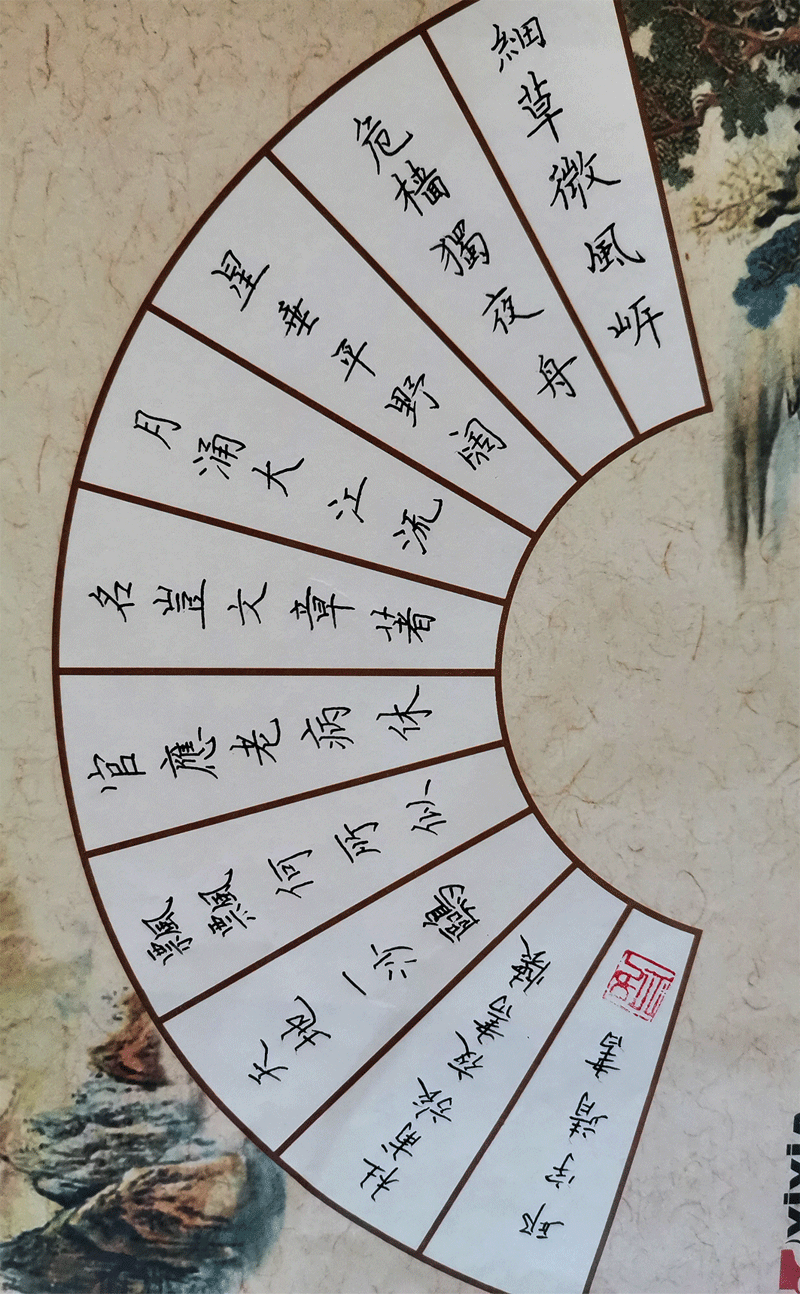 細草微風岸
危檣獨夜舟
星垂平野闊
月涌大江流
名豈文章著
官應老病休
飄飄何所似
天地一沙鷗
杜甫旅夜書懷
謹書